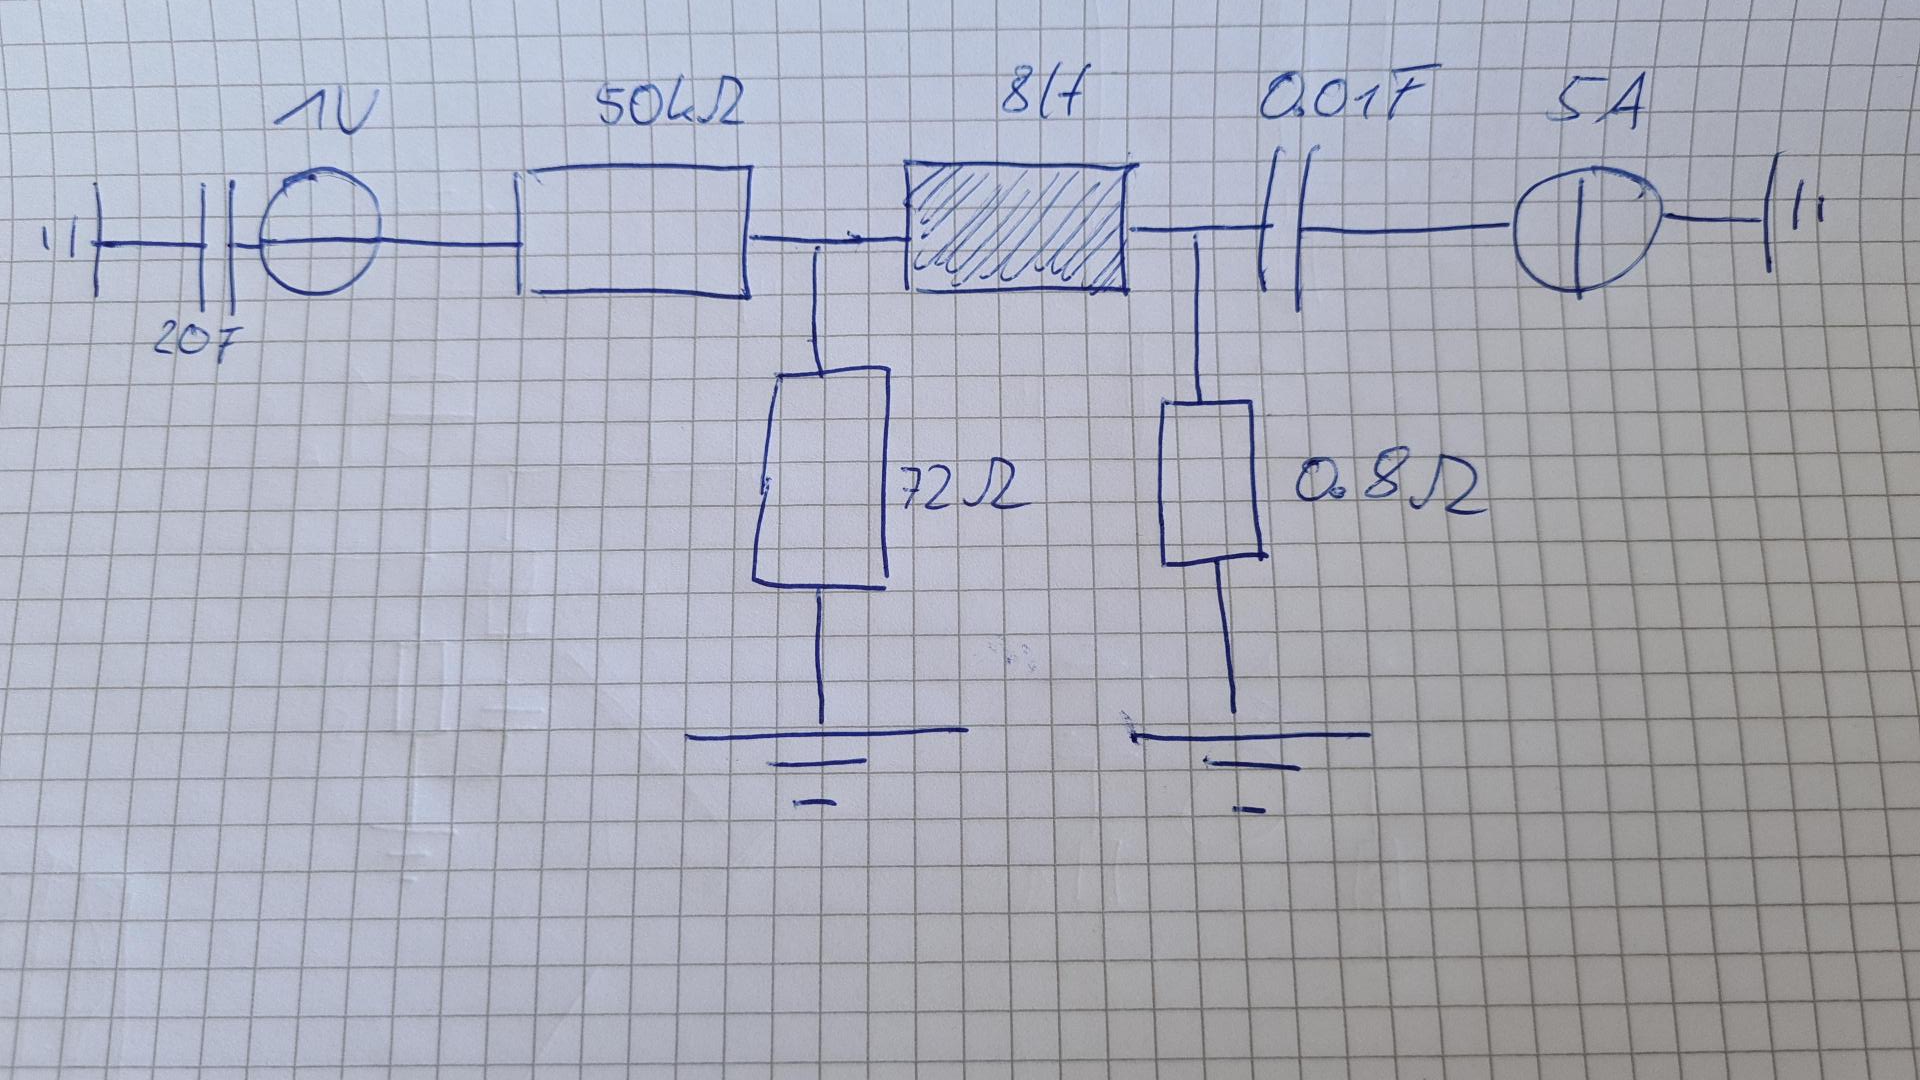 1V 50kΩ 8H 0.01F 5A
20F
72Ω 0.8Ω